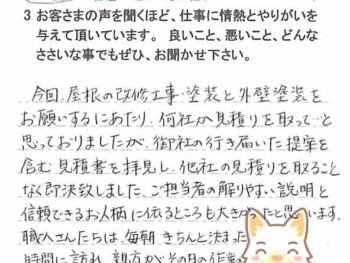 3 お客さまの声を聞くほど、仕事に情熱とやりがいを
与えて頂いています。 良いこと、悪いこと、どんな
ささいな事でもぜひ、お聞かせ下さい。
今回、屋根の改修工事・塗装と外壁塗装を
お願いするにあたり、何社か見積りを取って…と
思っておりましたが、御社の行き届いた提案を
含む見積書を拝見し、他社の見積りを取ること
なく即決致しました。ご担当者の解りやすい説明と
信頼できるお人柄に依るところも大きかったと思います。
職人さんたちは、毎朝きちんと決まった
時間に訪れ、親方がその日の作業